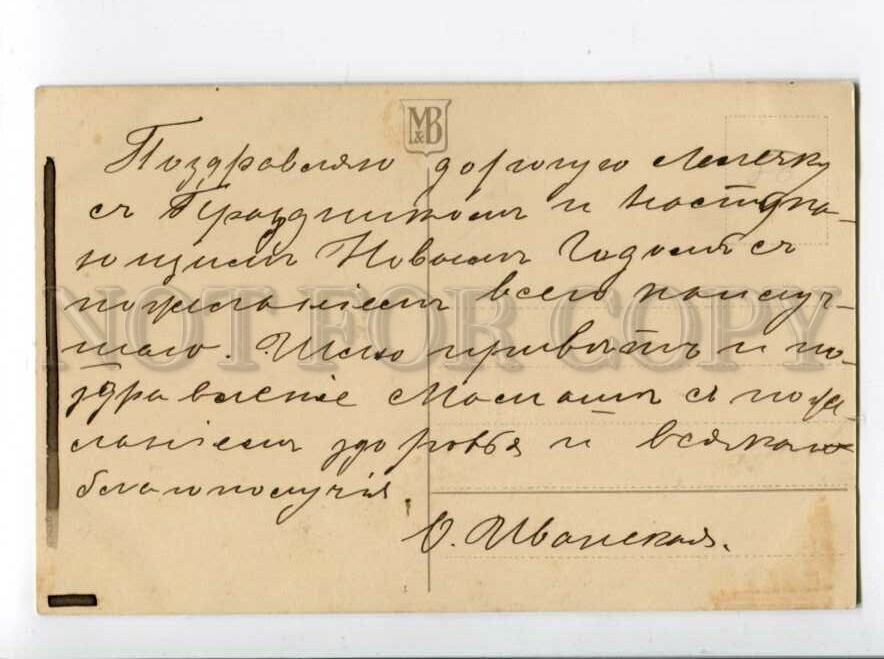 M&B
Поздравляю дорогую Лелечку
съ Праздникомъ и наступа-
ющимъ Новымъ Годомъ съ
пожеланiемъ всего наилуч-
шаго. Шлю привѣтъ и по-
здравленiе Мамашѣ съ поже-
ланiемъ здоровья и всякаго
благополучiя.
О. Иванская.
NOT FOR COPY